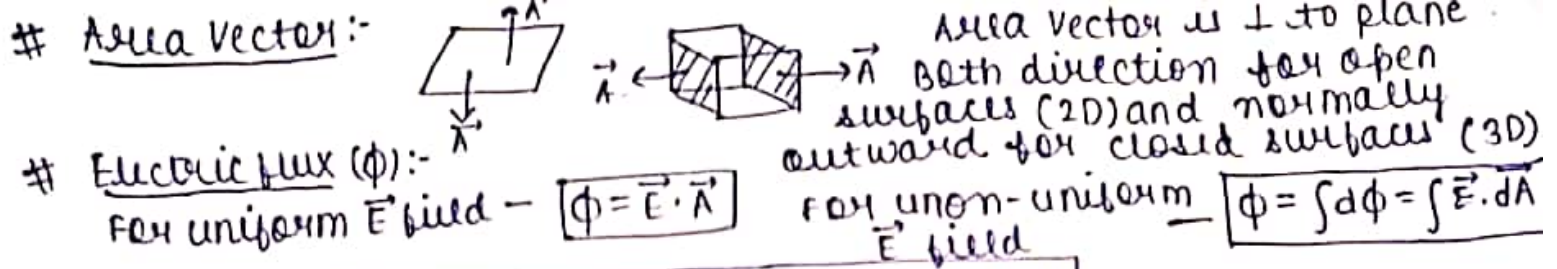 # Area Vector:-
A⃗
A⃗
A⃗
A⃗
Area vector is ⊥ to plane.
Both direction for open
surfaces (2D) and normally
outward for closed surfaces (3D)
# Electric flux (ϕ):-
For uniform E⃗ field - ϕ = E⃗·A⃗
For unon-uniform E⃗ field - ϕ = ∫dϕ = ∫E⃗.dA⃗